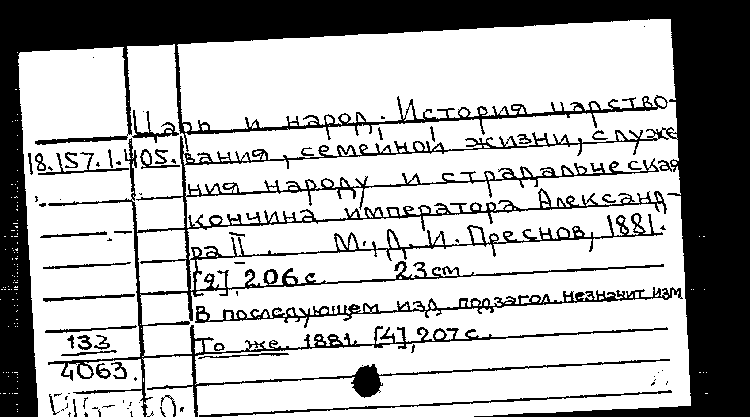 Царь и народ. История царство-
18.157.1.405. вания, семейной жизни, служе
ния народу и страдальческая
кончина императора Александ-
ра II. М., Д. И. Преснов, 1881.
[2], 206 с. 23 см
В последующем изд. подзагол. незначит. изм
То же. 1881. [4], 207 с.
133
4063.